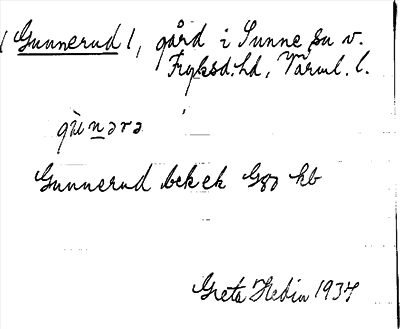 ( Gunnerud /, gård i Sunne sn v.
Fryksd. hd, Värml. l.
gùnərə
Gunnerud bek ek kb
Greta Hedin 1937